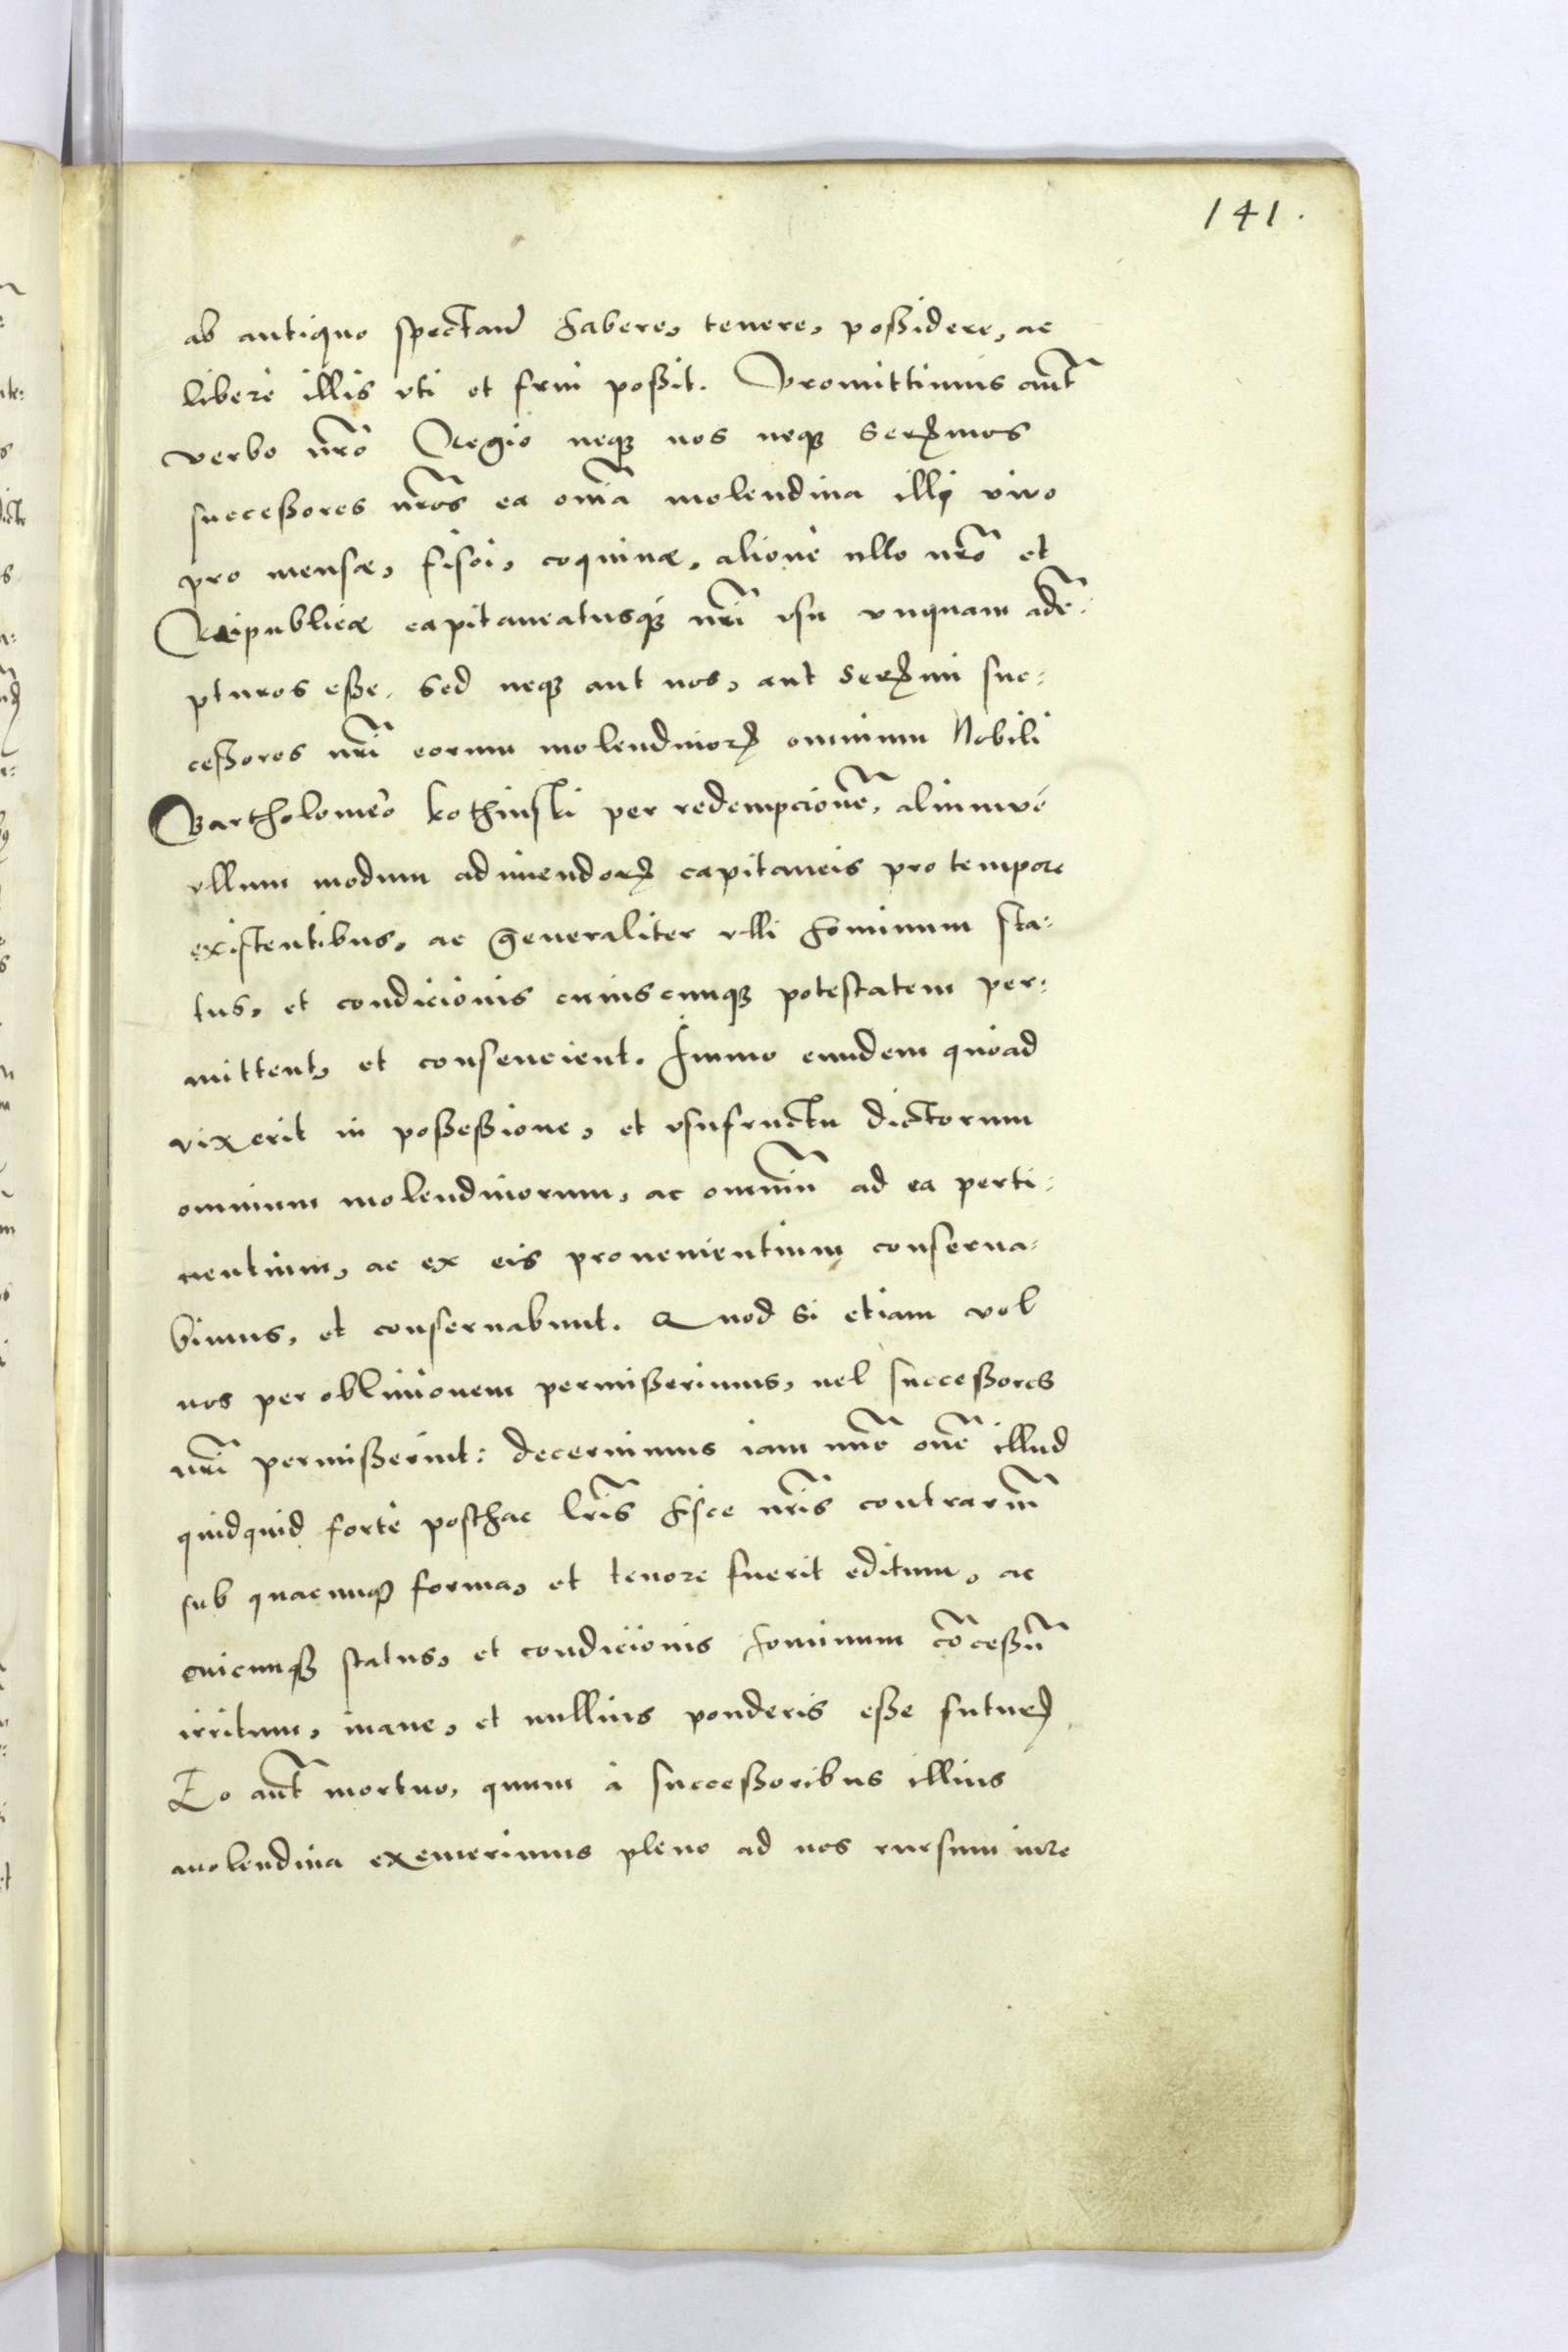 141.
ab antiquo spectand̄ habere, tenere, possidere, ac
libere illis vti et frui possit. Promittimus aut̃
verbo nr̃o Regio neqꝫ nos neqꝫ Serꝫmos
successores nr̃os ea om̃ia molendina illi vivo
pro mensæ, fisci, coquinæ, alione ullo nr̃o et
Reipublicæ capitaneatusqꝫ nr̃i vsu vnquam ade:
pturos esse. Sed neqꝫ aut nos, aut Serꝫmi suc:
cessores nr̃i eorum molendinorꝫ omnium Nobili
Bartholomeo Kothinski per redempcionẽ, aliumvé
vllum modum adimendorꝫ capitaneis pro tempore
existentibus, ac generaliter vlli hominum sta:
tus, et condicionis cuiuscunqꝫ potestatem per:
mittent, et consencient. Immo eundem quòad
vixerit in possessione, et vsufructu dictorum
omnium molendinorum, ac omniũ ad ea perti:
nentium, ac ex eis provenientium conserua:
bimus, et conseruabunt. Quod si etiam vel
nos per obliuionem permisserimus, uel successores
nr̃i permisserint: decernimus iam nũc om̃e illud
quidquid fortè posthac lr̃is hisce nr̃is contrariũ
sub quacunqꝫ forma, et tenore fuerit editum, ac
cuicunqꝫ status, et condicionis hominum cõcessũ
irritum, inane, et nullius ponderis esse futurꝫ.
Eo aut̃ mortuo, quum à successoribus illius
molendina exemerimus pleno ad nos rursum iure